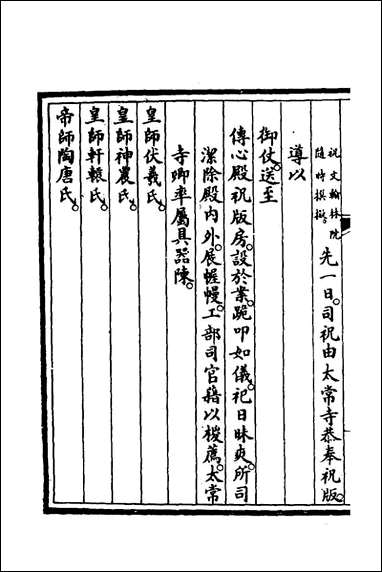 祝文翰林院
隨時撰擬。先一日。司祝由太常寺恭奉祝版。
導以
御仗。送至
傳心殿祝版房。設於案。跪叩如儀。祀日昧爽。所司
潔除殿內外。展幄幔。工部司官藉以椶薦。太常
寺卿率屬具器陳。
皇師伏羲氏。
皇師神農氏。
皇師軒轅氏。
帝師陶唐氏。